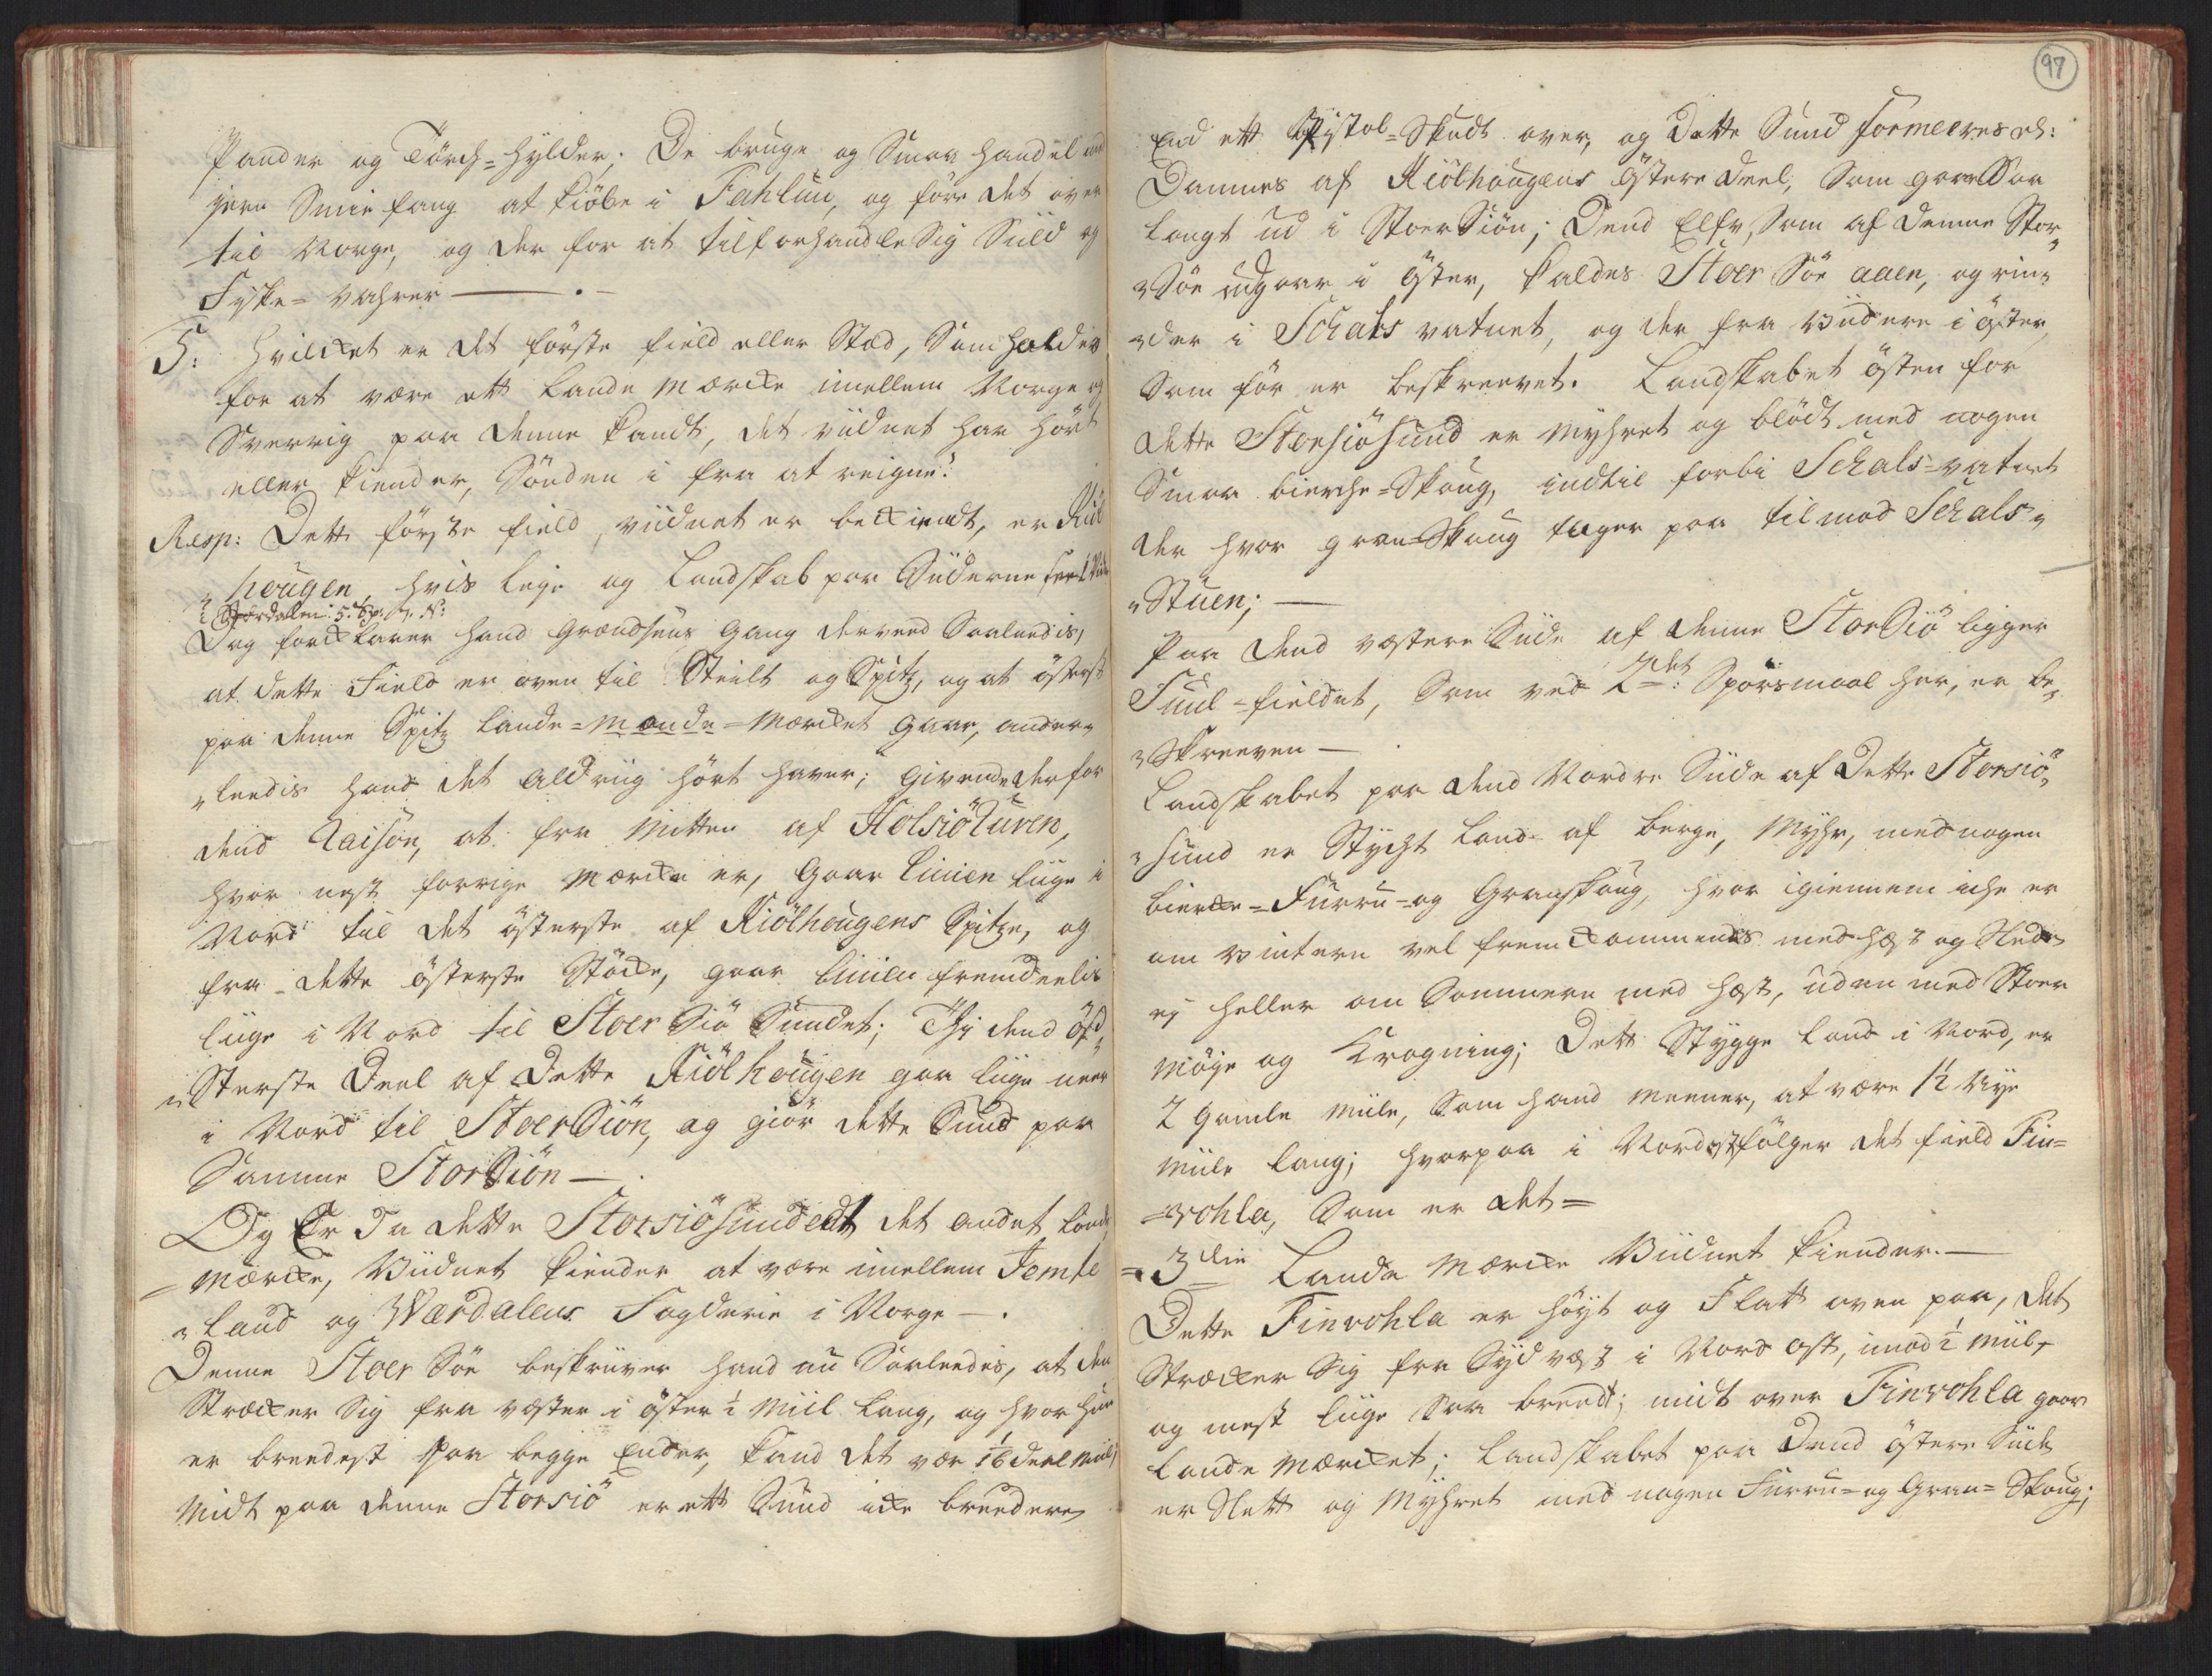 Pander og Törch-Hylder. De bruge og Smaa Handel med
jern Smiefang at kiöbe i Fahlun, og före det over
til Norge, og der for at tilforhandle Sig Sild og
Fiske-Vahrer —.—
5: Hvilcket er det förste field eller Stæd, Som holdes
for at være ett Lande Mærcke imellem Norge og
Sverrig paa denne kandt, det viidnet har hört
eller kiender, Sönden i fra at reigne?
Resp: Dett förste field, viidnet er beckiendt, er Kiöl
„hougen, hvis leje og Landskab paa Siiderne
Stördalen: 5. Sp:
Dog forcklarer hand Grændsens Gang derved Saaledis,
at dette Field er oven til Steilt og Spitz, og at österst
paa denne Spitz Lande-Mande-Mærcket gaar, ander„
„ledis hand det aldriig hört haver; givende der for
dend Raison, at fra Mitten af Holsiö Turen,
hvor nest forrige Mærcke er, gaar Linien liige i
Nord til det österste af Kiölhougens Spitze, og
fra dette österste Stöcke, gaar Linien fremdeelis
liige i Nord til Stoer Siö Sundet; Thj dend öst
„Sterste Deel af Dette Kiölhougen gaa liige neer
i Nord til Stoer Siön, og giör dette Sund paa
Samme Stor Siön —.
Og Er Da dette Storsiösundedt det andet Lande
=Mærcke, Viidnet kiender at være imellem Jemte
„land og Wærdalens Fogderie i Norge —.
Denne Stoer Söe beskriiver hand nu Saaledis, at den
Strecker Sig fra væster i öster ½ Miil lang, og hvor hun
er breedest paa begge Ender, kand det vær 1/6 deel Miil,
Midt paa denne Storsiö er ett Sund icke breedere
97
End ett Pistol-Skudt over, og Dette Sund formeeres ell:
Dannes af Kiölhougens östere Deel, Som gaar Saa
langt ud i Stoer Siön; Dend Elfv, Som af denne Stor„
„Söe udgaar i Öster, kaldes Stoer Söe aaen, og rin„
„der i Schals vatnet, og der fra viidere i öster,
Som för er beskreevet. Landskabet östen for
dette Storsiösund er Myhret og blödt med nogen
Smaa bierche-Skoug, indtil forbi Schals-vatnet
der hvor gran-Skoug tager paa til mod Schals„
„Stuen; —
Paa dend væstere Siide af denne Stor Siö ligger
Suul-fieldet, Som ved 2det: Spörsmaal her, er be„
„Skreeven —.
Landskabet paa dend Nordre Siide af Dette Storsiö„
„sund er Stygt land af berge, Myhr, med nogen
biercke-Furru- og Granskoug, hvor igiennem iche er
om vintern vel fremkommendes med Hest og Slede
ej heller om Sommern med Hest, uden med Stoer
möje og Krogning; Dett Stygge Land i Nord, er
2 gamle Miile, Som hand meener, at være 1½ Nye
Miile lang; hvorpaa i Nordost fölger det field Fin=
=vohla, Som er det=
=3die Lande Mærcke Viidnet kiender. —
Dette Finvohla er höyt og Flatt oven paa, det
Strecker Sig fra Sydvest i Nord Ost, imod ½ Miil,
og mest liige Saa breedt; midt over Finvohla gaar
Lande Mærcket; Landskabet paa Dend östere Siide
er Slett og Myhret med nogen Furru- og Gran-Skoug;